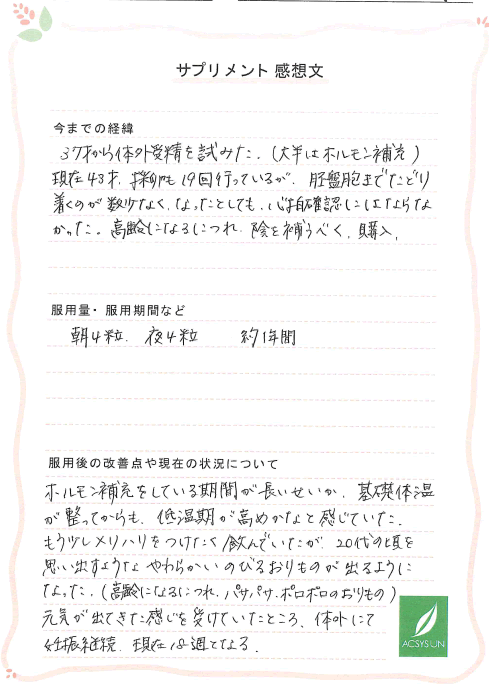 サプリメント 感想文
今までの経緯
37才から体外受精を試みた。(大半はホルモン補充)
現在43才、採卵も19回行っているが、胚盤胞までたどり
着くのが数少なく、なったとしても、心拍確認にはならな
かった。高齢になるにつれ、陰を補うべく、購入。
服用量・服用期間など
朝4粒、夜4粒 約1年間
服用後の改善点や現在の状況について
ホルモン補充をしている期間が長いせいか、基礎体温
が整ってからも、低温期が高めかなと感じていた。
もう少しメリハリをつけたく飲んでいたが、20代の頃を
思い出すような やわらかい のびるおりものが出るように
なった。(高齢になるにつれ、パサパサ、ボロボロのおりもの)
元気が出てきた感じを受けていたところ、体外にて
妊娠継続、現在18週となる。
ACSYSUN